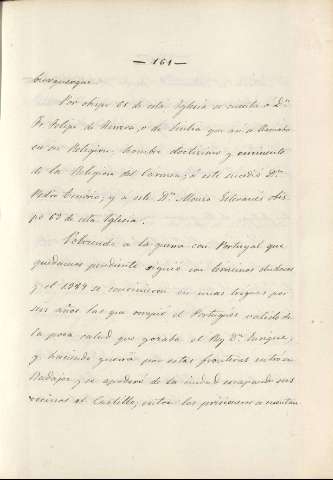 — 161 —
burquerque.
Por obispo 61 de esta Iglesia se cuenta a Dn.
Fr. Felipe de Herrera, o de Sevilla que así se llamaba
en su Religion. hombre doctísimo y eminente
de la Religion del Carmen; á este sucedió Dn.
Pedro Tenorio; y á este Dn. Alonso Estevanez obis-
po 63 de esta Iglesia.
Volviendo a la guerra con Portugal que
quedamos pendiente siguió con
y el 1389 se convinieron en unas treguas por
seis años las que rompió el Portugues valido de
la poca salud que gozaba el Rey Dn. Enrique,
y haciendo guerra por estas fronteras entró en
Badajoz y se apoderó de la ciudad escapando sus
vecinos al Castillo; entre los prisioneros se cuentan